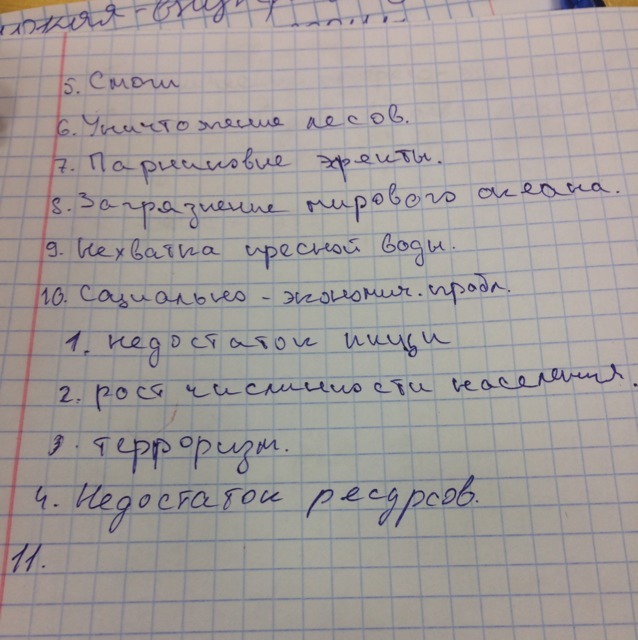 5. Смоги
6. Уничтожение лесов.
7. Парниковые эфекты.
8. Загрязнение мирового океана.
9. Нехватка пресной воды.
10. Социально - экономич. пробл.
1. недостаток пищи
2. рост числинности населения.
3. терроризм.
4. Недостаток ресурсов.
11.